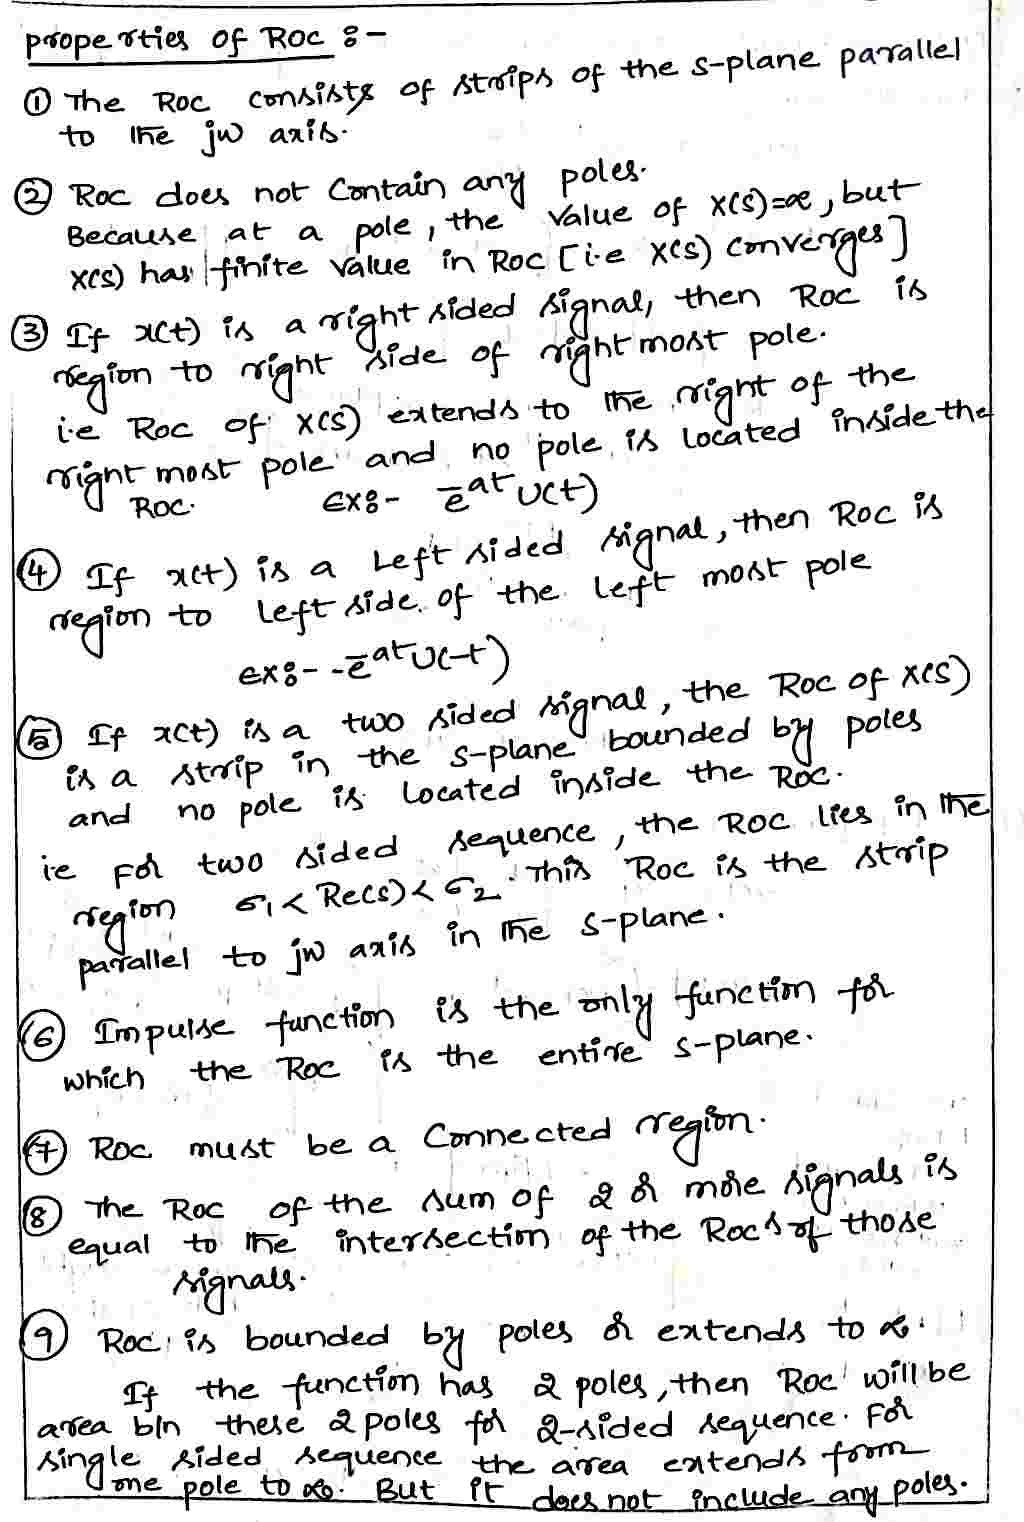 properties of ROC :-
① The ROC consists of strips of the s-plane parallel
to the jw axis.
② ROC does not contain any poles.
Because at a pole, the value of X(s)=∞, but
X(s) has finite value in ROC [i.e X(s) converges]
③ If x(t) is a right sided signal, then ROC is
region to right side of right most pole.
i.e ROC of X(s) extends to the right of the
right most pole and no pole is located inside the
ROC. Ex:- e^-at u(t)
④ If x(t) is a Left sided signal, then ROC is
region to left side of the left most pole
ex:- -e^-at u(-t)
⑤ If x(t) is a two sided signal, the ROC of X(s)
is a strip in the s-plane bounded by poles
and no pole is located inside the ROC.
i.e For two sided sequence, the ROC lies in the
region σ1 < Re(s) < σ2. This ROC is the strip
parallel to jw axis in the s-plane.
⑥ Impulse function is the only function for
which the ROC is the entire s-plane.
⑦ ROC must be a connected region.
⑧ The ROC of the sum of 2 or more signals is
equal to the intersection of the ROCs of those
signals.
⑨ ROC is bounded by poles or extends to ∞.
If the function has 2 poles, then ROC will be
area b/n these 2 poles for 2-sided sequence. For
single sided sequence the area extends from
one pole to ∞. But it does not include any poles.